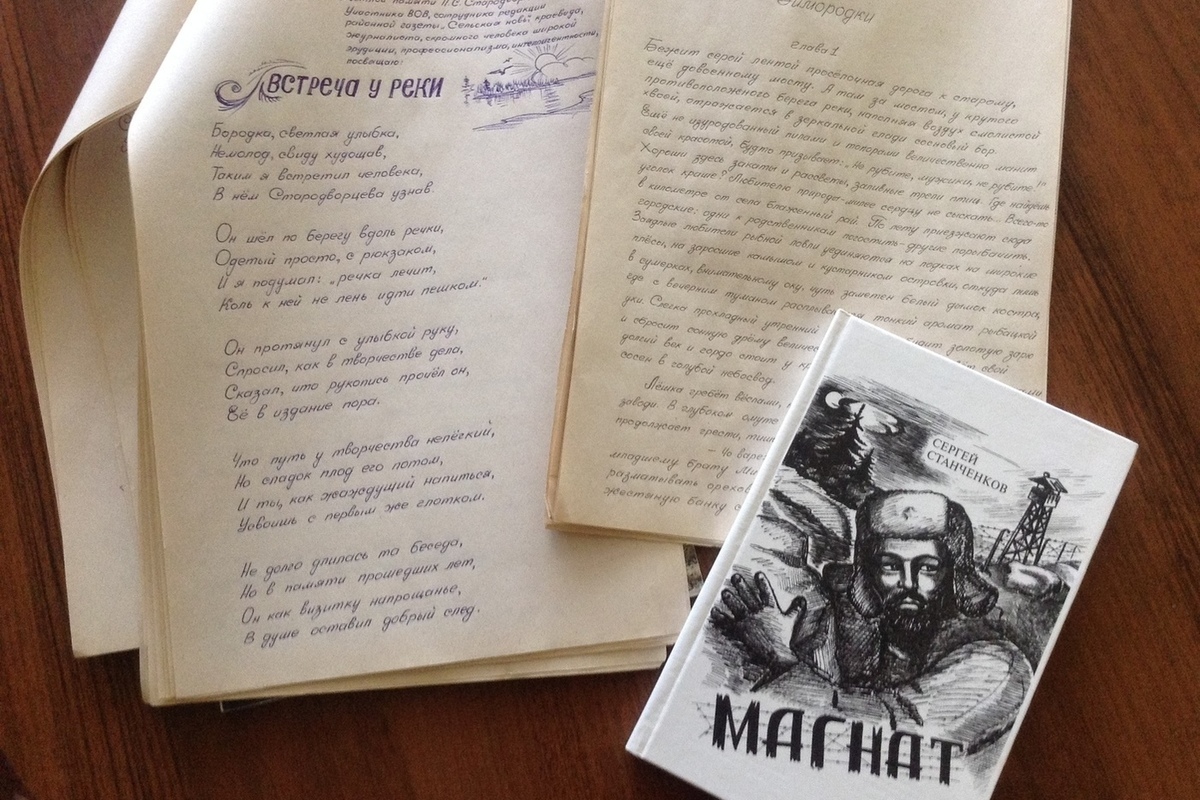 памяти П.С. Стародвор
Участника ВОВ, сотрудника редакции
районной газеты „Сельская новь", краеведа,
журналиста, скромного человека широкой
эрудиции, профессионализма, интеллигентности,
посвящаю:
ВСТРЕЧА У РЕКИ
Бородка, светлая улыбка,
Немолод, свиду худощав,
Таким я встретил человека,
В нём Стародворцева узнав.
Он шёл по берегу вдоль речки,
Одетый просто, с рюкзаком,
И я подумал: „речка лечит,
Коль к ней не лень идти пешком."
Он протянул с улыбкой руку,
Спросил, как в творчестве дела,
Сказал, что рукопись прочёл он,
Её в издание пора.
Что путь у творчества нелёгкий,
Но сладок плод его потом,
И ты, как жаждущий напиться,
Усвоишь с первым же глотком.
Не долго длилась та беседа,
Но в памяти прошедших лет,
Он как визитку напрощанье,
В душе оставил добрый след.
Зимородки
глава 1
Бежит серой лентой просёлочная дорога к старому,
ещё довоенному мосту. А там за мостом, у крутого
противоположного берега реки, наполняя воздух смолистой
хвоей, отражается в зеркальной глади сосновый бор.
Ещё не изуродованный пилами и топорами величественно манит
своей красотой, будто призывает: „Не рубите, мужики, не рубите!"
Хороши здесь закаты и рассветы, заливные трели птиц. Где найдёшь
уголок краше? Любителю природы-милее сердцу не сыскать... Всего-то
в километре от села блаженный рай. По лету приезжают сюда
городские: одни к родственникам погостить-другие порыбачить.
Заядлые любители рыбной ловли уединяются на лодках на широкие
плёсы, на заросшие камышом и кустарником островки, откуда лишь
в сумерках, внимательному оку, чуть заметен белый дымок костра,
где с вечерним туманом расплывается тонкий аромат рыбацкой
ухи. Слегка прохладный утренний золотую зарю
и сбросит сонную дрёму свой
долгий век и гордо стоит у
сосен в голубой небосвод.
Лёшка гребёт вёслами,
заводи. В глубоком омуте
продолжает грести,
– Чо
младшему брату
разматывать
жестяную банку с
СЕРГЕЙ
СТАНЧЕНКОВ
МАГНАТ